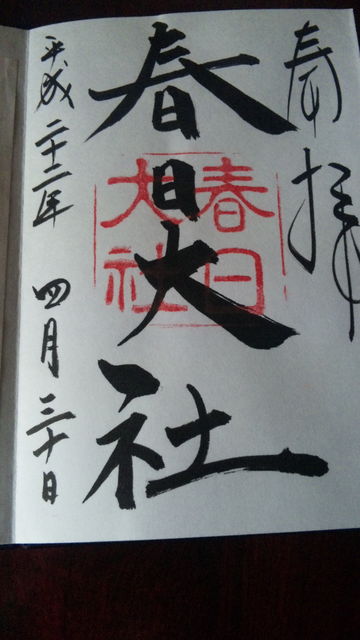 奉拝
春日大社
春日
大社
平成二十二年 四月三十日